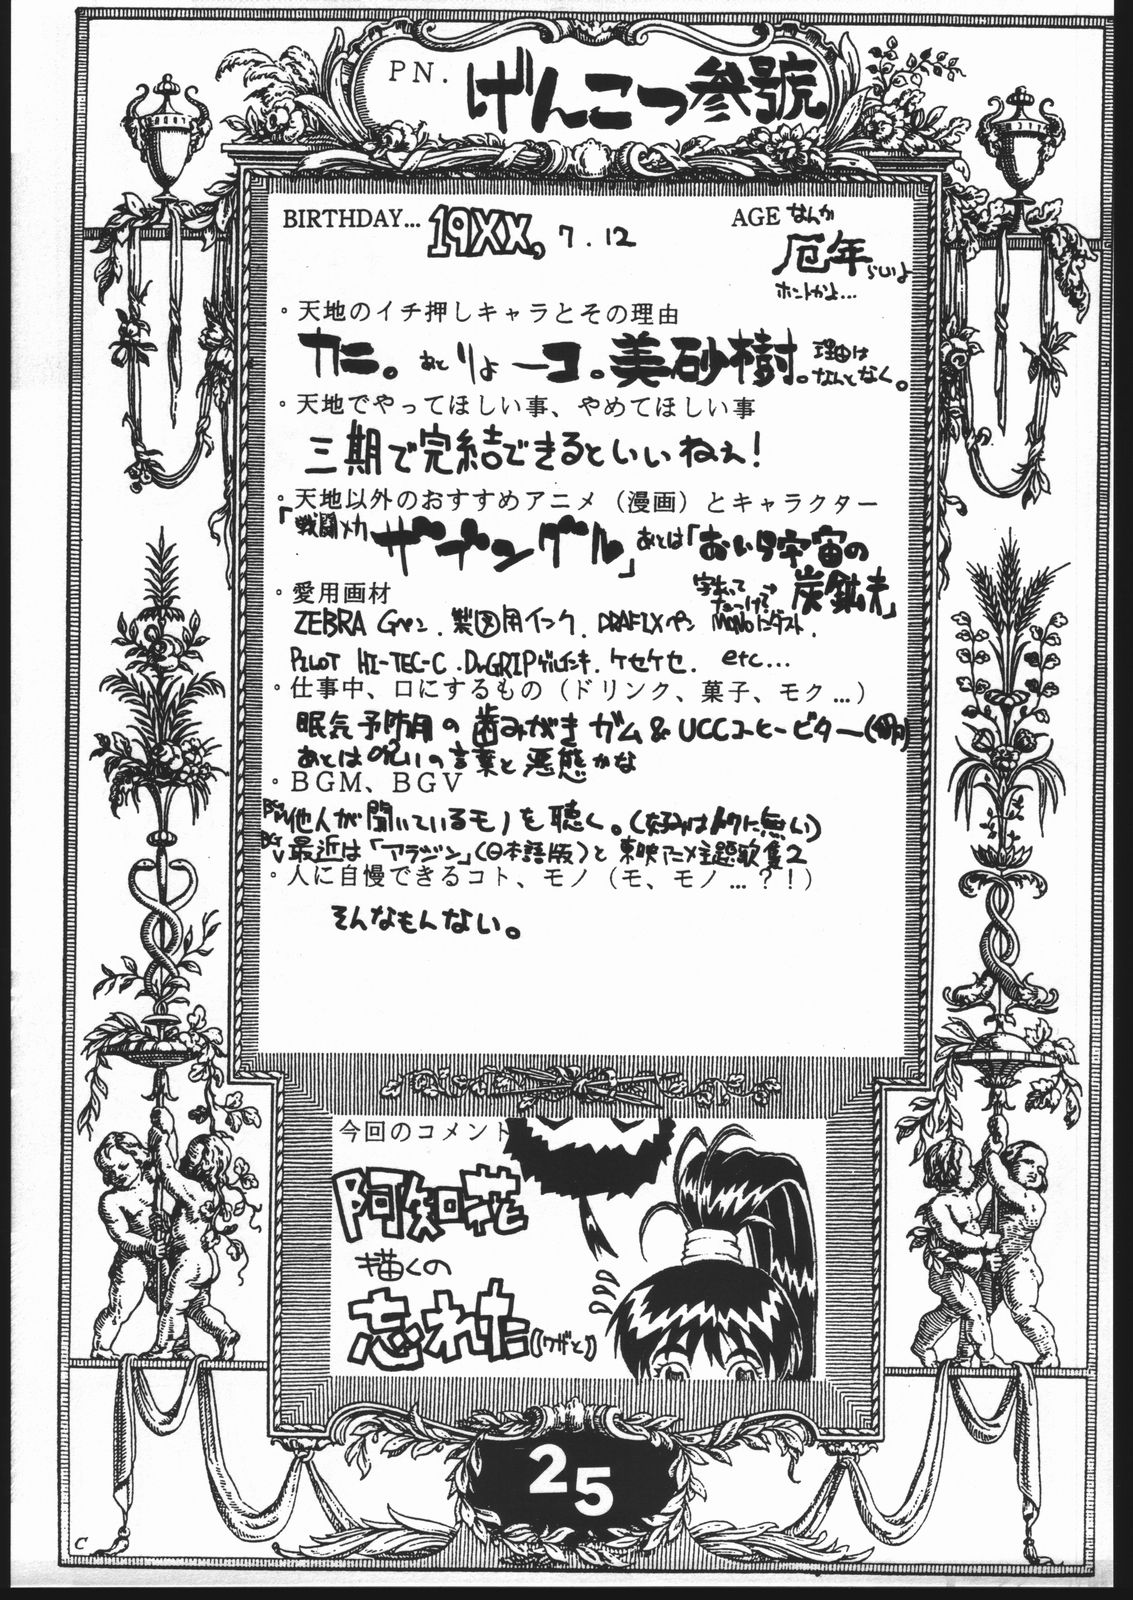 PN. げんこつ参號
BIRTHDAY... 19XX, 7.12
AGE なんか
厄年らしいよ
ホントかよ...
・天地のイチ押しキャラとその理由
カニ。あとりょーコ。美砂樹。理由はなんとなく。
・天地でやってほしい事、やめてほしい事
三期で完結できるといいねぇ!
・天地以外のおすすめアニメ（漫画）とキャラクター
「戦闘メカ ザブングル」あとは「おいら宇宙の
炭鉱夫」
・愛用画材
ZEBRA Gペン. 製図用インク. DRAFIXペン MONO
PILOT HI-TEC-C. Dr.GRIPゲルインキ. ケセケセ. etc...
・仕事中、口にするもの（ドリンク、菓子、モク...）
眠気予防用の歯みがきガム&UCCコーヒービター
あとは呪いの言葉と悪態かな
・BGM、BGV
BGM 他人が聞いているモノを聴く。(好みはトクに無い)
BGV 最近は「アラジン」(日本語版)と東映アニメ主題歌集2
・人に自慢できるコト、モノ（モ、モノ...?!）
そんなもんない。
今回のコメント
阿知花
描くの
忘れた((ワザと))
25
C